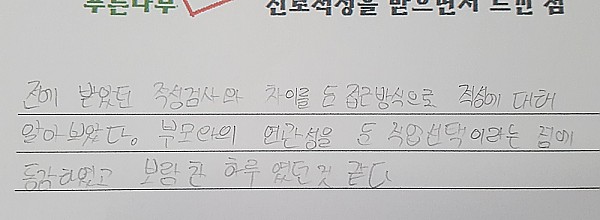 푸른나무 진로적성을 받으면서 느낀 점
전에 받았던 적성검사와 차이를 둔 접근방식으로 적성에 대해
알아보았다. 부모와의 연관성을 둔 직업선택이라는 점에
동감하였고 보람찬 하루였던것 같다